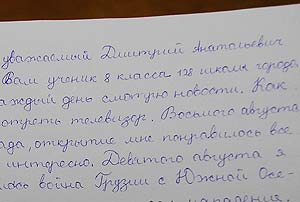 уважаемый Дмитрий Анатольевич
Вам ученик 8 класса 128 школы города
аждый день смотрю новости. Как
отреть телевизор. Восьмого августа
ада, открытие мне понравилось все
интересно. Девятого августа я
лось война Грузии с Южной Осе-
нападения